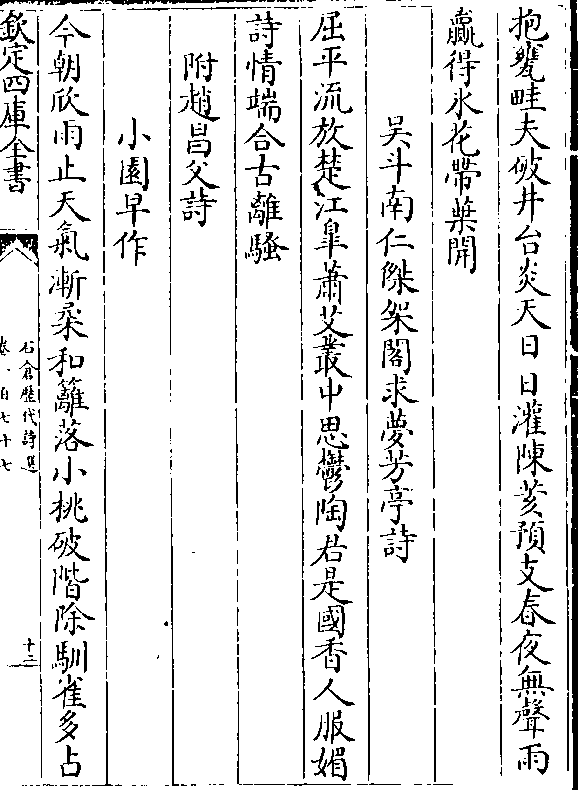 抱甕畦夫傍井台炎天日日灌陳荄預支春夜無聲雨
贏得氷花帶葉開
吴斗南仁傑架閣求夢芳亭詩
屈平流放楚江臯蕭艾叢中思鬱陶若是國香人服媚
詩情端合古離騷
附趙昌父詩
小園早作
今朝欣雨止天氣漸柔和籬落小桃破階除馴雀多占
欽定四庫全書
石倉歷代詩選
卷一百七十七
十二